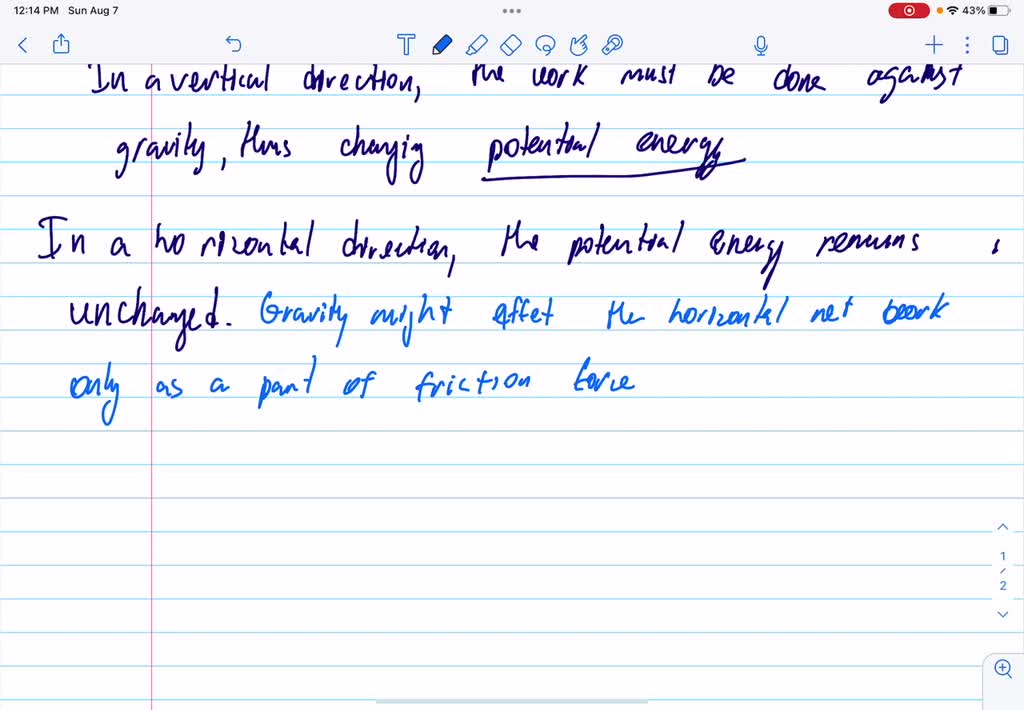 12:14 PM Sun Aug 7
43%
In a vertical direction, the work must be done against
gravity, thus changing potential energy
In a horizontal direction, the potential energy remains
unchanged. Gravity might effet the horizontal net work
only as a part of friction force
1
/
2